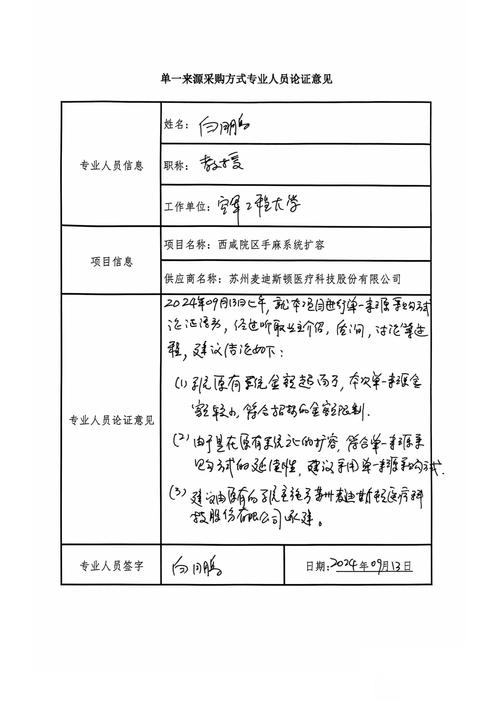 单一来源采购方式专业人员论证意见
专业人员信息
姓名：向鹏
职称：教授
工作单位：空军工程大学
项目信息
项目名称：西咸院区手麻系统扩容
供应商名称：苏州麦迪斯顿医疗科技股份有限公司
专业人员论证意见
2024年09月13日上午，就本项目进行单一来源采购方式
论证活动，经过听取业主介绍，质询，讨论等过
程，建议结论如下：
(1) 系统原有金额起，本次单一来源金
额较小，符合招标的金额限制.
(2) 由于是在原有系统上的扩容，符合单一来源采
购方式的延续性，建议采用单一来源采购方式.
(3) 建议由原有的系统苏州麦迪斯顿医疗科
技股份有限公司承建。
专业人员签字
向鹏
日期：2024年09月13日